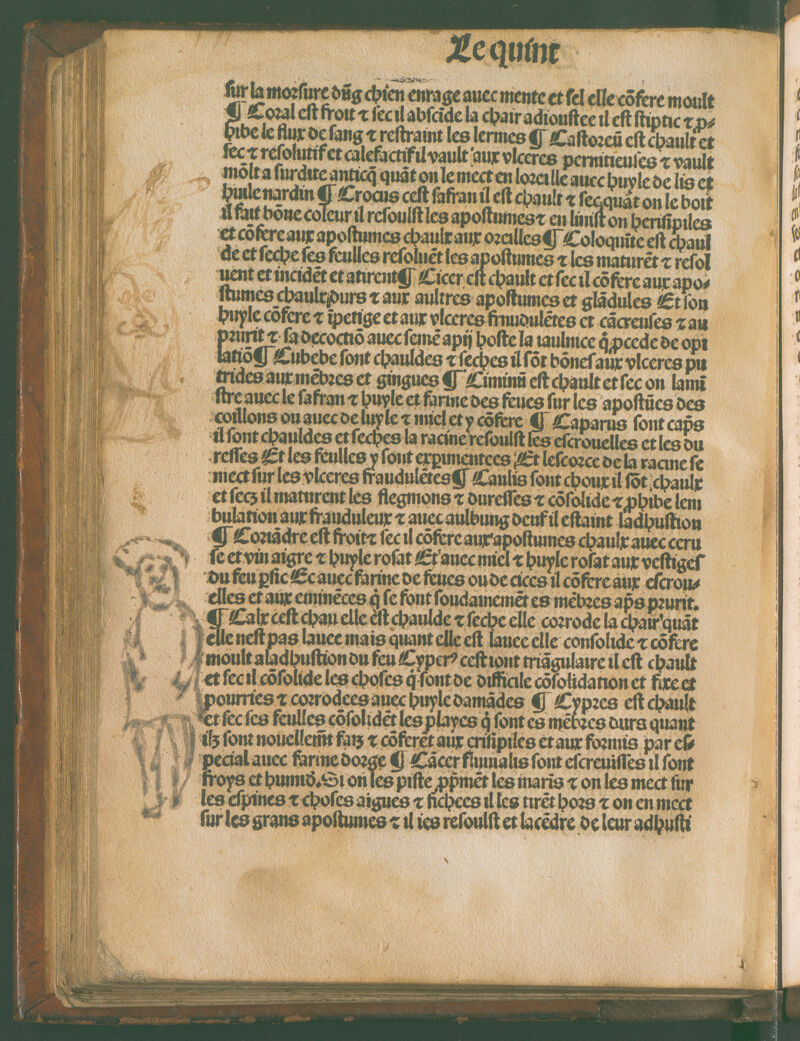 Le quint
sur la morsure dũg chien enrage auec mente et sel elle cõfere moult
¶ Coral est froit ⁊ sec il abscide la chair adioustee il est stiptic ⁊ p⸗
hibe le flux de sang ⁊ restraint les lermes ¶ Castoreũ est chault et
sec ⁊ resolutif et calefactif il vault aux vlceres permitieuses ⁊ vault
mõlt a surdite anticq̃ quãt on le mect en loreille auec huyle de lis et
huile nardin ¶ Crocus cest safran il est chault ⁊ sec quãt on le boit
il fait bõne coleur il resoulst les apostumes ⁊ en linist on herisipiles
et cõfere aux apostumes chaulx aux oreilles ¶ Coloquĩte est chaul
de et seche ses feulles resoluẽt les apostumes ⁊ les maturẽt ⁊ resol
uent et incidẽt et atirent ¶ Cicer est chault et sec il cõfere aux apo⸗
stumes chaulx durs ⁊ aux aultres apostumes et glãdules Et son
huyle cõfere ⁊ ĩpetige et aux vlceres frnudulẽtes et cãcreuses ⁊ au
prurit ⁊ sa decoctiõ auec semẽ apij hoste la iaulnice q̃ pcede de opi
latiõ ¶ Cubebe sont chauldes ⁊ seches il sõt bõnes aux vlceres pu
trides aux mẽbres et gingues ¶ Ciminũ est chault et sec on lamĩ
stre auec le safran ⁊ huyle et farine des feues sur les apostũes des
coillons ou auec de luyle ⁊ miel et y cõfere ¶ Caparus sont cap̃s
il sont chauldes et seches la racine resoulst les escrouelles et les du
resses Et les feulles y sont expimentees Et lescorce de la racine se
mect sur les vlceres fraudulẽtes ¶ Caulis sont choux il sõt chaulx
et secz il maturent les flegmons ⁊ duresses ⁊ cõsolide ⁊ phibe lem
bulation aux frauduleux ⁊ auec aulbung deuf il estaint ladhustion
¶ Coriãdre est froit ⁊ sec il cõfere aux apostumes chaulx auec ceru
se et vin aigre ⁊ huyle rosat Et auec miel ⁊ huyle rosat aux vestiges
du feu psic Ec auec farine de feues ou de cices il cõfere aux escrou⸗
elles et aux eminẽces q̃ se font soudainemẽt es mẽbres ap̃s prurit.
¶ Calx cest chau elle est chaulde ⁊ seche elle corrode la chair quãt
elle nest pas lauee mais quant elle est lauee elle consolide ⁊ cõfere
moult a ladhustion du feu Cyperꝰ cest iont triãgulaire il est chault
et sec il cõsolide les choses q̃ sont de difficile cõsolidation et fixe et
pourries ⁊ corrodees auec huyle damãdes ¶ Cypres est chault
et sec ses feulles cõsolidẽt les playes q̃ sont es mẽbres durs quant
ilz sont nouellem̃t faiz ⁊ cõferẽt aux crisipiles et aux formis par es⸗
pecial auec farine dorge ¶ Cãcer fluuialis sont escreuisses il sont
froys et humid. Si on les piste ppmẽt les maris ⁊ on les mect sur
les espines ⁊ choses aigues ⁊ fichees il les tirẽt hors ⁊ on en mect
sur les grans apostumes ⁊ il les resoulst et lacẽdre de leur adhusti